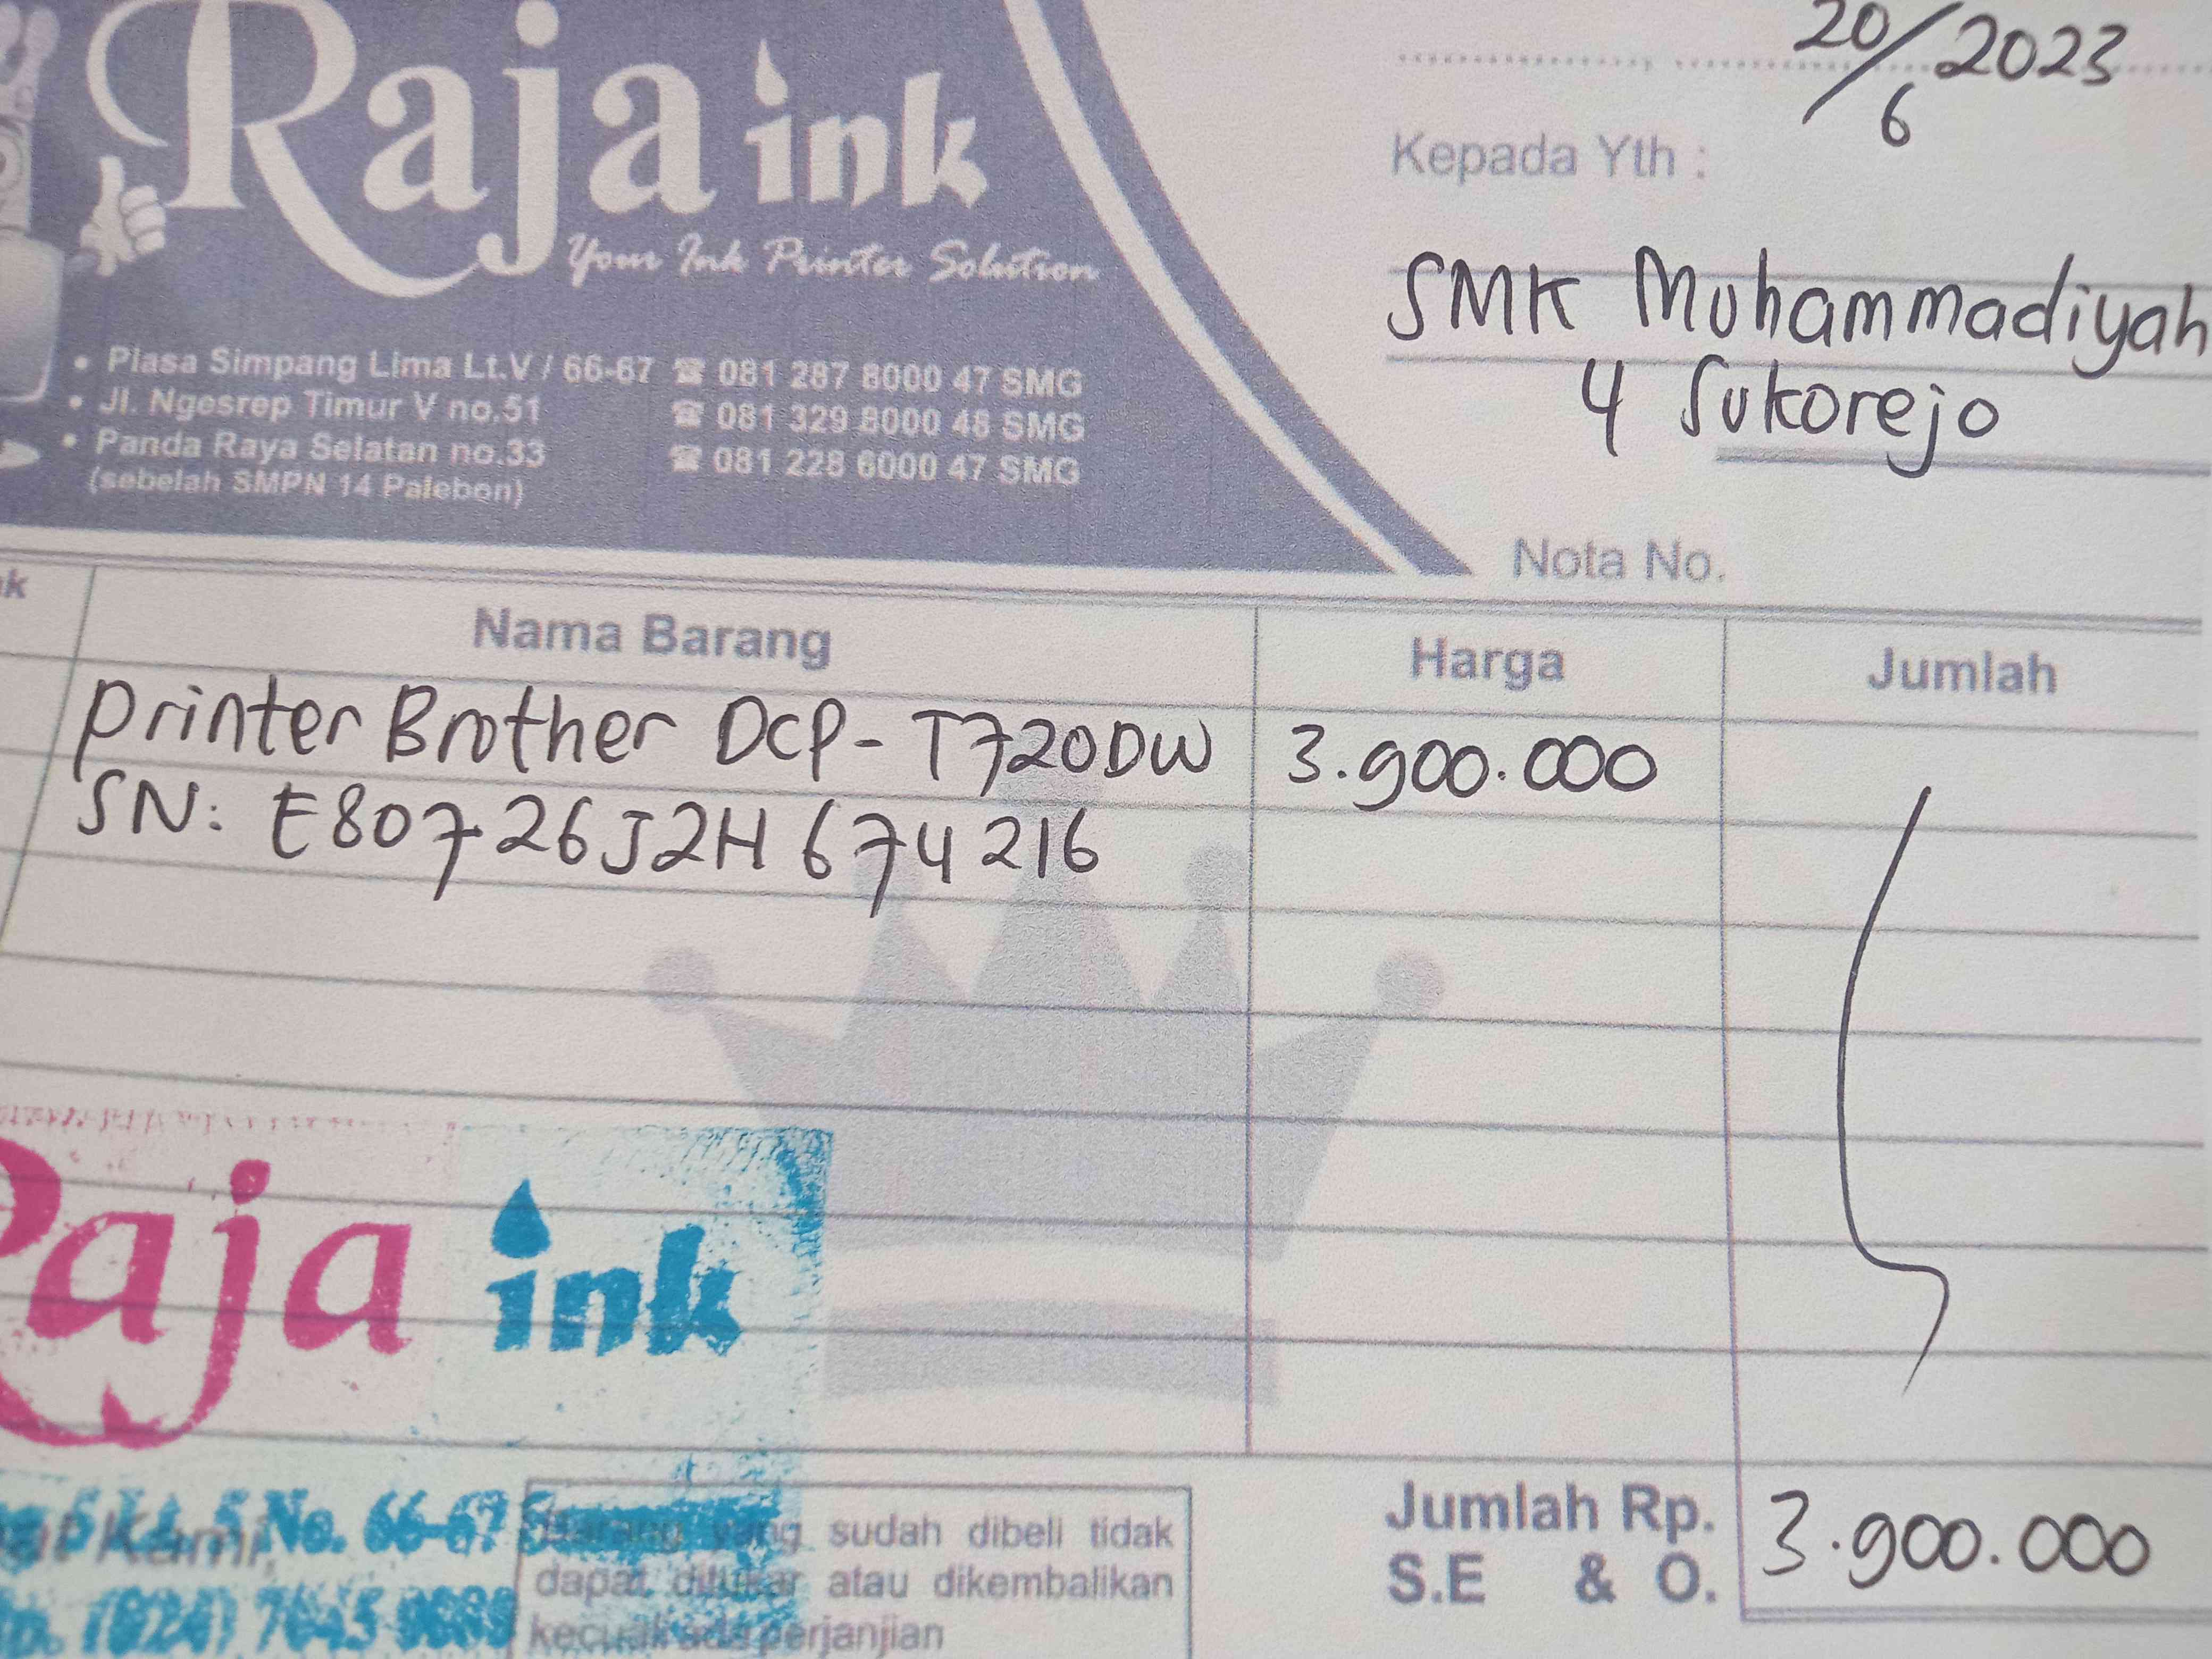 20/6 2023
Raja ink
Your Ink Printer Solution
Kepada Yth :
SMK Muhammadiyah
4 Sukorejo
• Plasa Simpang Lima Lt.V / 66-67 ☎ 081 287 8000 47 SMG
• Jl. Ngesrep Timur V no.51 ☎ 081 329 8000 48 SMG
• Panda Raya Selatan no.33 ☎ 081 228 6000 47 SMG
(sebelah SMPN 14 Palebon)
Nota No.
k Nama Barang Harga Jumlah
Printer Brother DCP-T720DW 3.900.000
SN: E80726J2H674216
Raja ink
5 Lt. 5 No. 66-67
Kami,
(024) 7645
Barang yang sudah dibeli tidak
dapat ditukar atau dikembalikan
kecuali ada perjanjian
Jumlah Rp. 3.900.000
S.E & O.